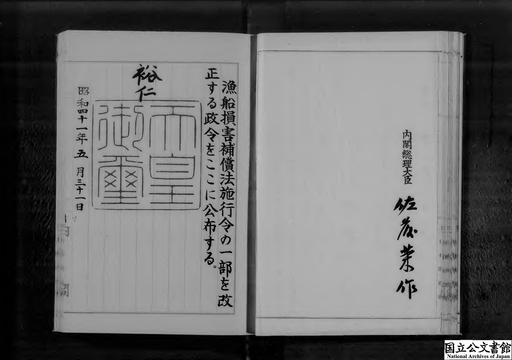 漁船損害補償法施行令の一部を改
正する政令をここに公布する。
裕仁
天皇
御璽
昭和四十一年五月三十一日
内閣総理大臣
佐藤栄作
国立公文書館
National Archives of Japan